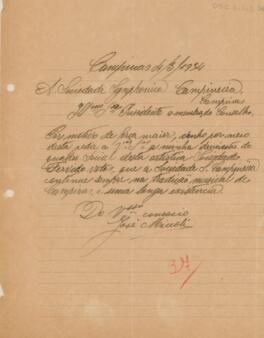 Campinas 4/5/1934
A Sociedade Symphonica Campineira
Campinas
Illmo Sr. Presidente e membros do Conselho.
Por motivo de força maior, venho por meio
desta pedir a V.as S.as a minha demissão do
quadro social desta estimada Sociedade
Fazendo votos, que a Sociedade S. Campineira
continue sempre, na tradição musical de
Campinas, e uma longa existencia.
De V.ssa consocio
José
37